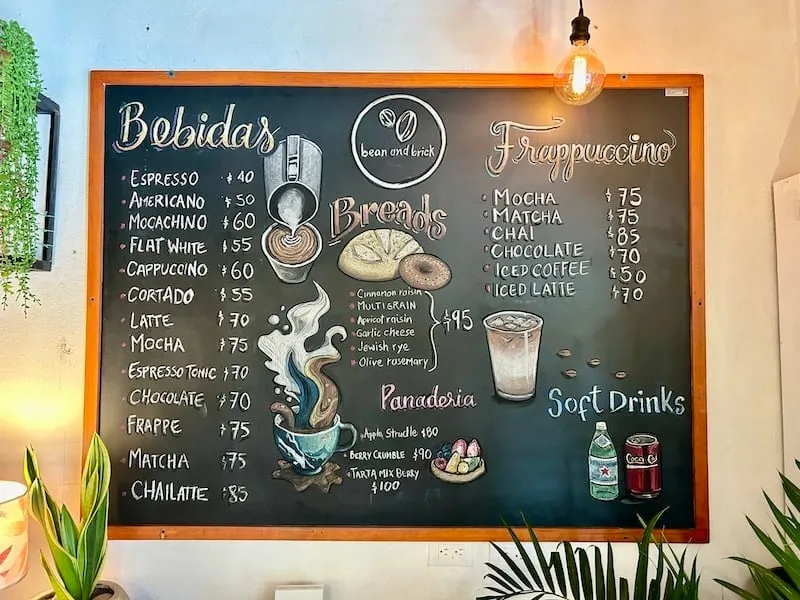 Bebidas
ESPRESSO $40
AMERICANO $50
MOCACHINO $60
FLAT WHITE $55
CAPPUCCINO $60
CORTADO $55
LATTE $70
MOCHA $75
ESPRESSO TONIC $70
CHOCOLATE $70
FRAPPE $75
MATCHA $75
CHAILATTE $85
bean and brick
Breads
Cinnamon raisin
MULTIGRAIN
Apricot raisin
Garlic cheese
Jewish rye
Olive rosemary
$95
Panaderia
Apple Strudle $80
BERRY CRUMBLE $90
TARTA MIX BERRY
$100
Frappuccino
MOCHA $75
MATCHA $75
CHAI $85
CHOCOLATE $70
ICED COFFEE $50
ICED LATTE $70
Soft Drinks
Coca-Cola